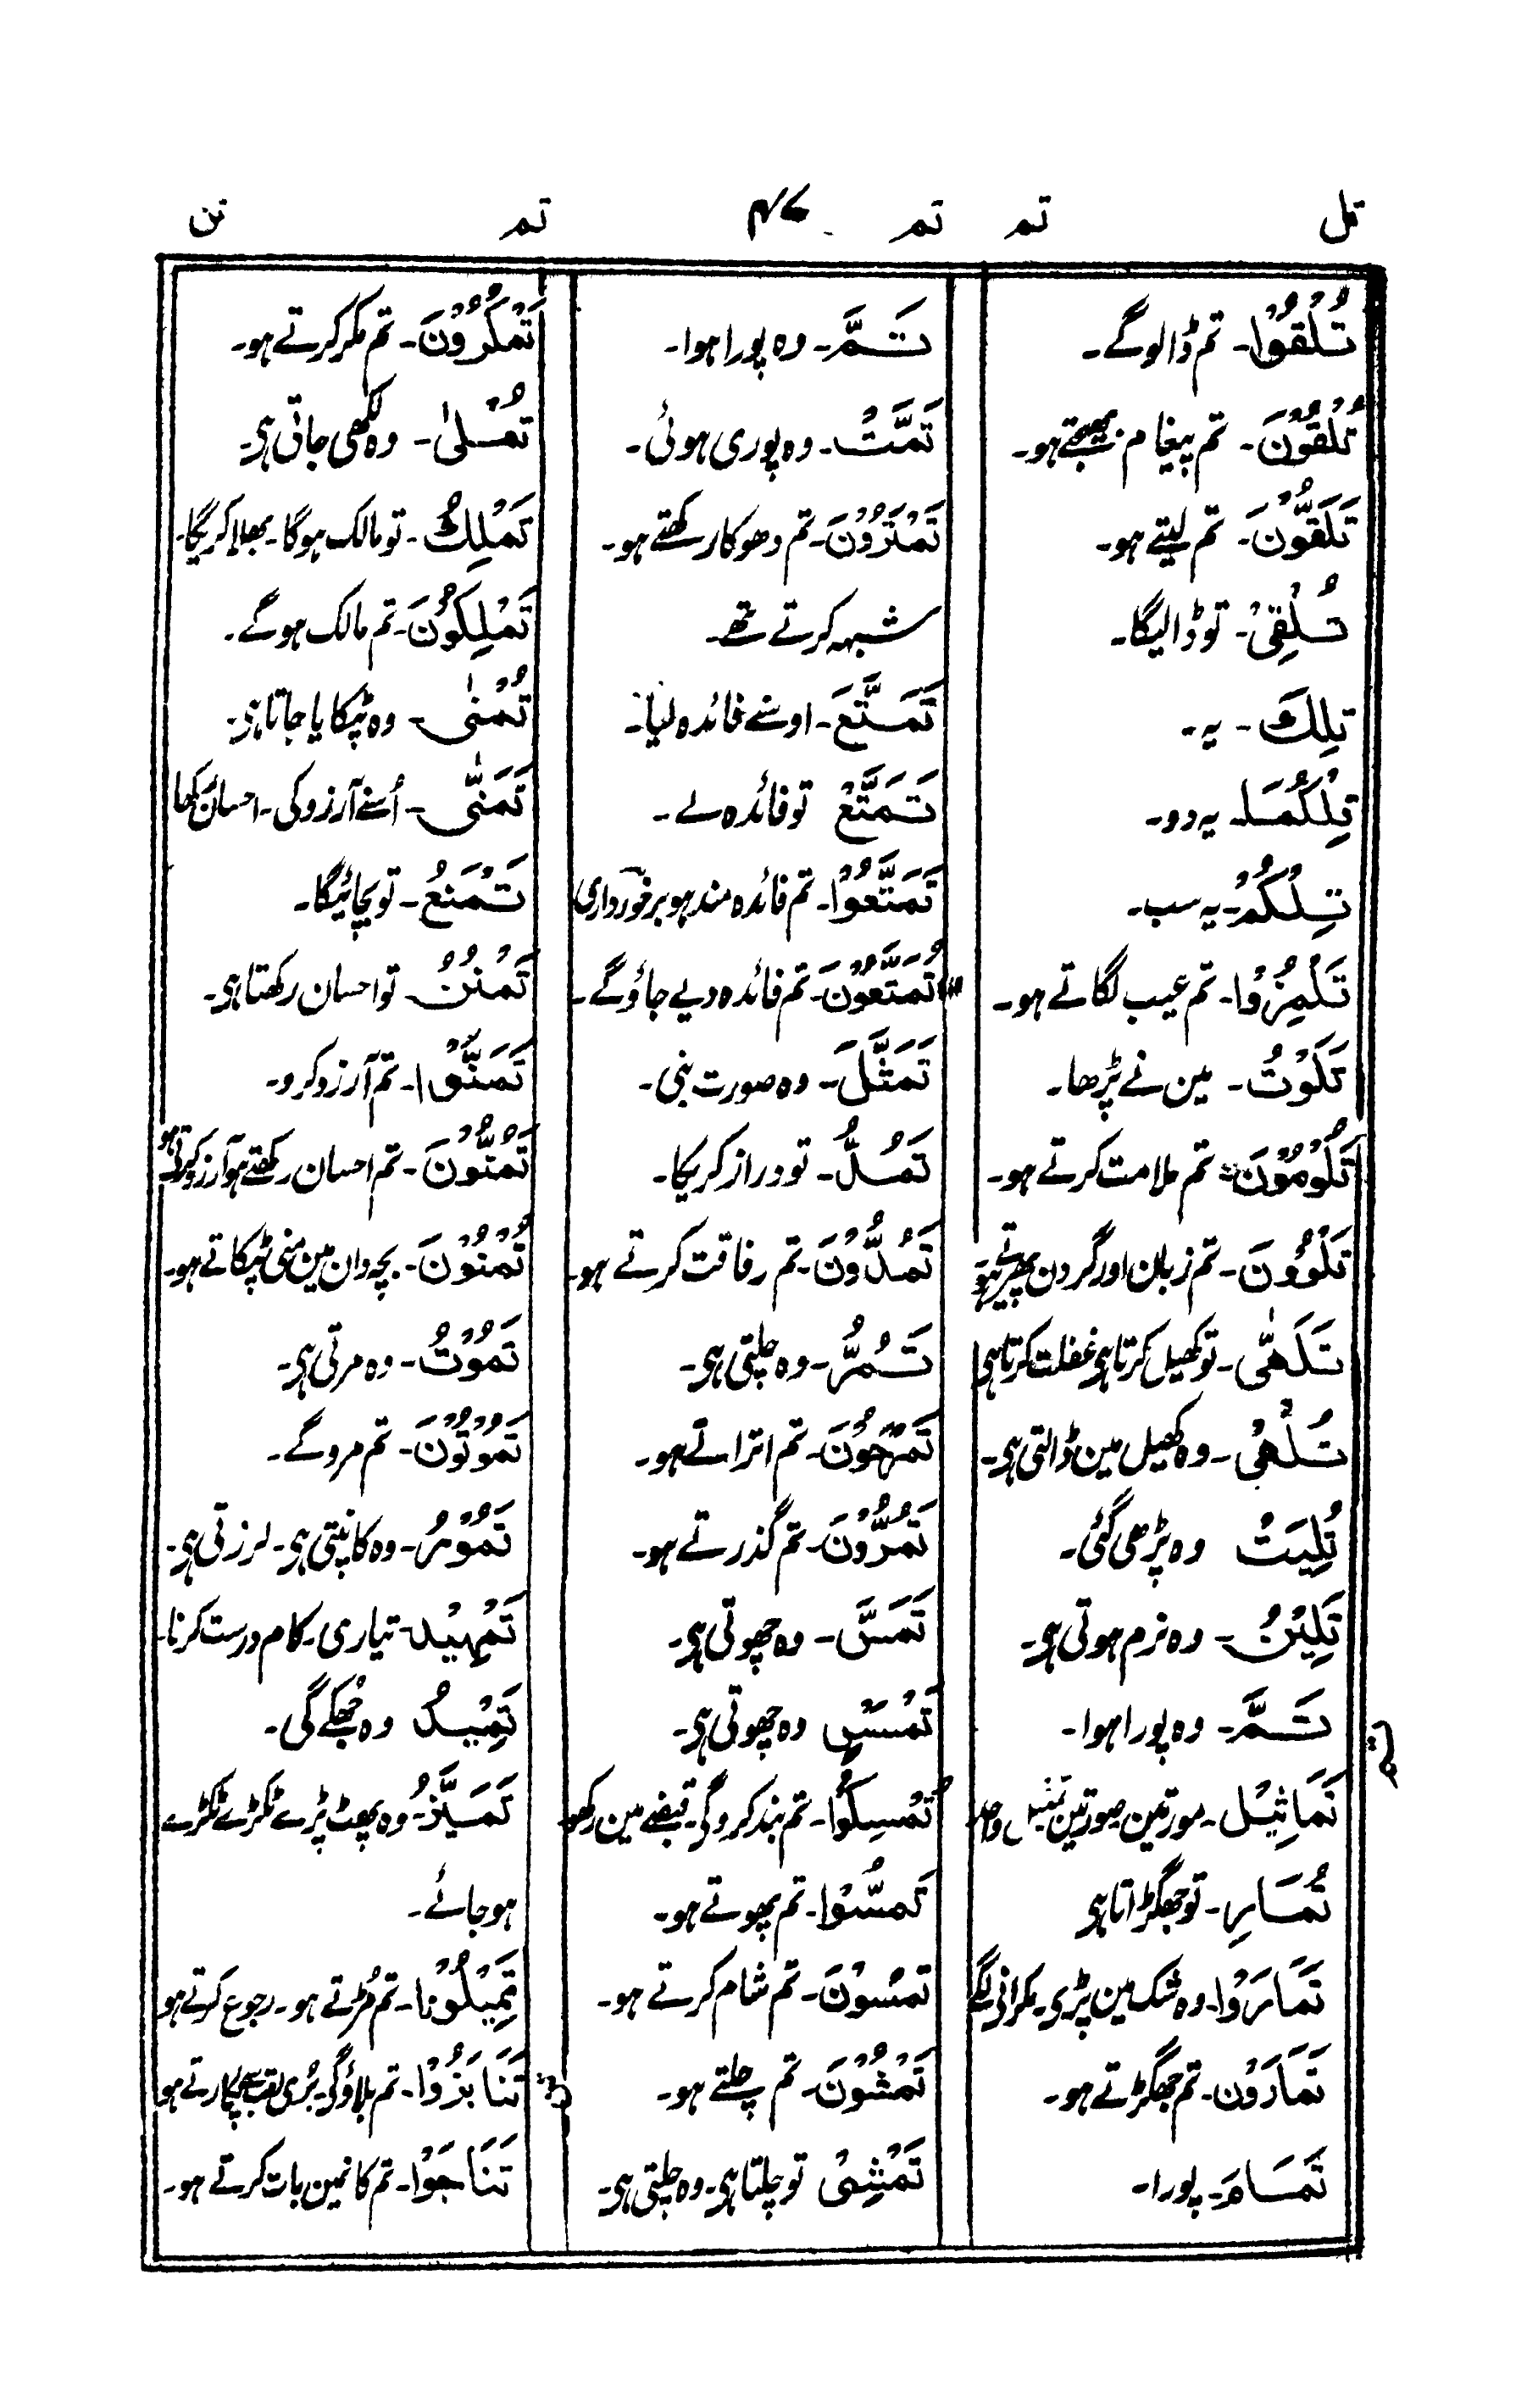 تل تم تم ۴۷ تم تن
تُلْقُوْا۔ تم ڈالوگے۔
تُلْقُوْنَ۔ تم پیغام بھیجتے ہو۔
تَلَقَّوْنَ۔ تم لیتے ہو۔
تُلْقِیْ۔ تو ڈالیگا۔
تِلْكَ۔ یہ۔
تِلْكُمَا۔ یہ دو۔
تِلْكُمْ۔ یہ سب۔
تَلْمِزُوْا۔ تم عیب لگاتے ہو۔
تَلَوْتُ۔ مین نے پڑھا۔
تَلُوْمُوْنَ۔ تم ملامت کرتے ہو۔
تَلْوٗوْنَ۔ تم زبان اور گردن پھیرتے ہو
تَلَهّٰی۔ تو کھیل کرتا ہی غفلت کرتا ہی
تُلْهِیْ۔ وہ کھیل مین ڈالتی ہی۔
تُلِیَتْ وہ پڑھی گئی۔
تَلِیْنُ۔ وہ نرم ہوتی ہی۔
تَمَّ۔ وہ پورا ہوا۔
تَمَاثِیْل۔ مورتین صورتین
تُمَارِ۔ تو جھگڑاتا ہی
تَمَارَوْا۔ وہ شک مین پڑی۔ مکرانی لگے
تَمَارَوْن۔ تم جھگڑتے ہو۔
تَمَامَ۔ پورا۔
تَمَّ۔ وہ پورا ہوا۔
تَمَّتْ۔ وہ پوری ہوئی۔
تَمْتَرُوْنَ۔ تم دھوکا رکھتے ہو۔
شبہہ کرتے تھے۔
تَمَتَّعَ۔ اوسنے فائدہ لیا۔
تَمَتَّعْ تو فائدہ لے۔
تَمَتَّعُوْا۔ تم فائدہ مند ہو برخورداری
تُمَتَّعُوْنَ۔ تم فائدہ دیے جاؤگے۔
تَمَثَّلَ۔ وہ صورت بنی۔
تَمُدُّ۔ تو دراز کریگا۔
تَمُدُّوْنَ۔ تم رفاقت کرتے ہو۔
تَمُرُّ۔ وہ چلتی ہی۔
تَمْرَحُوْنَ۔ تم اتراتے ہو۔
تَمُرُّوْنَ۔ تم گذرتے ہو۔
تَمَسَّ۔ وہ چھوتی ہی۔
تَمْسَسْ وہ چھوتی ہی۔
تُمْسِكُوْا۔ تم بند کروگی۔ قبضے مین رکھو
تَمَسُّوْا۔ تم چھوتے ہو۔
تمسُوْنَ۔ تم شام کرتے ہو۔
تَمْشُوْنَ۔ تم چلتے ہو۔
تَمْشِیْ تو چلتا ہی۔ وہ چلتی ہی۔
تَمْكُرُوْنَ۔ تم مکر کرتے ہو۔
تُمْلیٰ۔ وہ لکھی جاتی ہی۔
تَمْلِكُ۔ تو مالک ہوگا۔ بھلا کریگا۔
تَمْلِكُوْنَ۔ تم مالک ہوگے۔
تُمْنٰی۔ وہ ٹپکایا جاتا ہی۔
تَمَنّٰی۔ اُسنے آرزو کی۔ احسان رکھا
تَمْنَعُ۔ تو بچائیگا۔
تَمْنُنُ۔ تو احسان رکھتا ہی۔
تَمَنَّوْا۔ تم آرزو کرو۔
تَمُنُّوْنَ۔ تم احسان رکھتے ہو آرزو کرتے ہو
تُمْنُوْنَ۔ بچہ دان مین منی ٹپکاتے ہو۔
تَمُوْتُ۔ وہ مرتی ہی۔
تَمُوْتُوْنَ۔ تم مروگے۔
تَمُوْرُ۔ وہ کانپتی ہی۔ لرزتی ہی۔
تَمْهِیْد۔ تیاری۔ کام درست کرنا۔
تَمِیْدُ وہ جھکے گی۔
تَمَیَّزُ۔ وہ پھٹ پڑے ٹکڑے ٹکڑے
ہو جائے۔
تَمِیْلُوْا۔ تم مُڑتے ہو۔ رجوع کرتے ہو
تَنَابَزُوْا۔ تم بلاؤگی۔ بُری لقب سے پکارتے ہو
تَنَاجَوْا۔ تم کانمین بات کرتے ہو۔